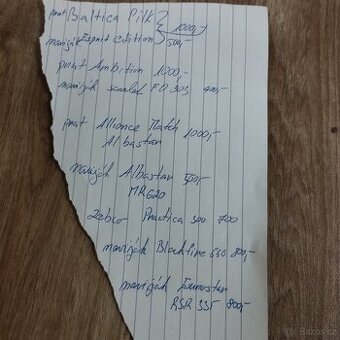 prut Baltica Pilk } 1000,-
naviják Esprit edition 500,-
prut Ambition 1000,-
naviják FD 303 400,-
prut Alliance Match 1000,-
Albastar
naviják Albastar 500,-
MR620
Zebco Practica 300 700
naviják Blackfire 640 800,-
naviják
RSR 335 800,-